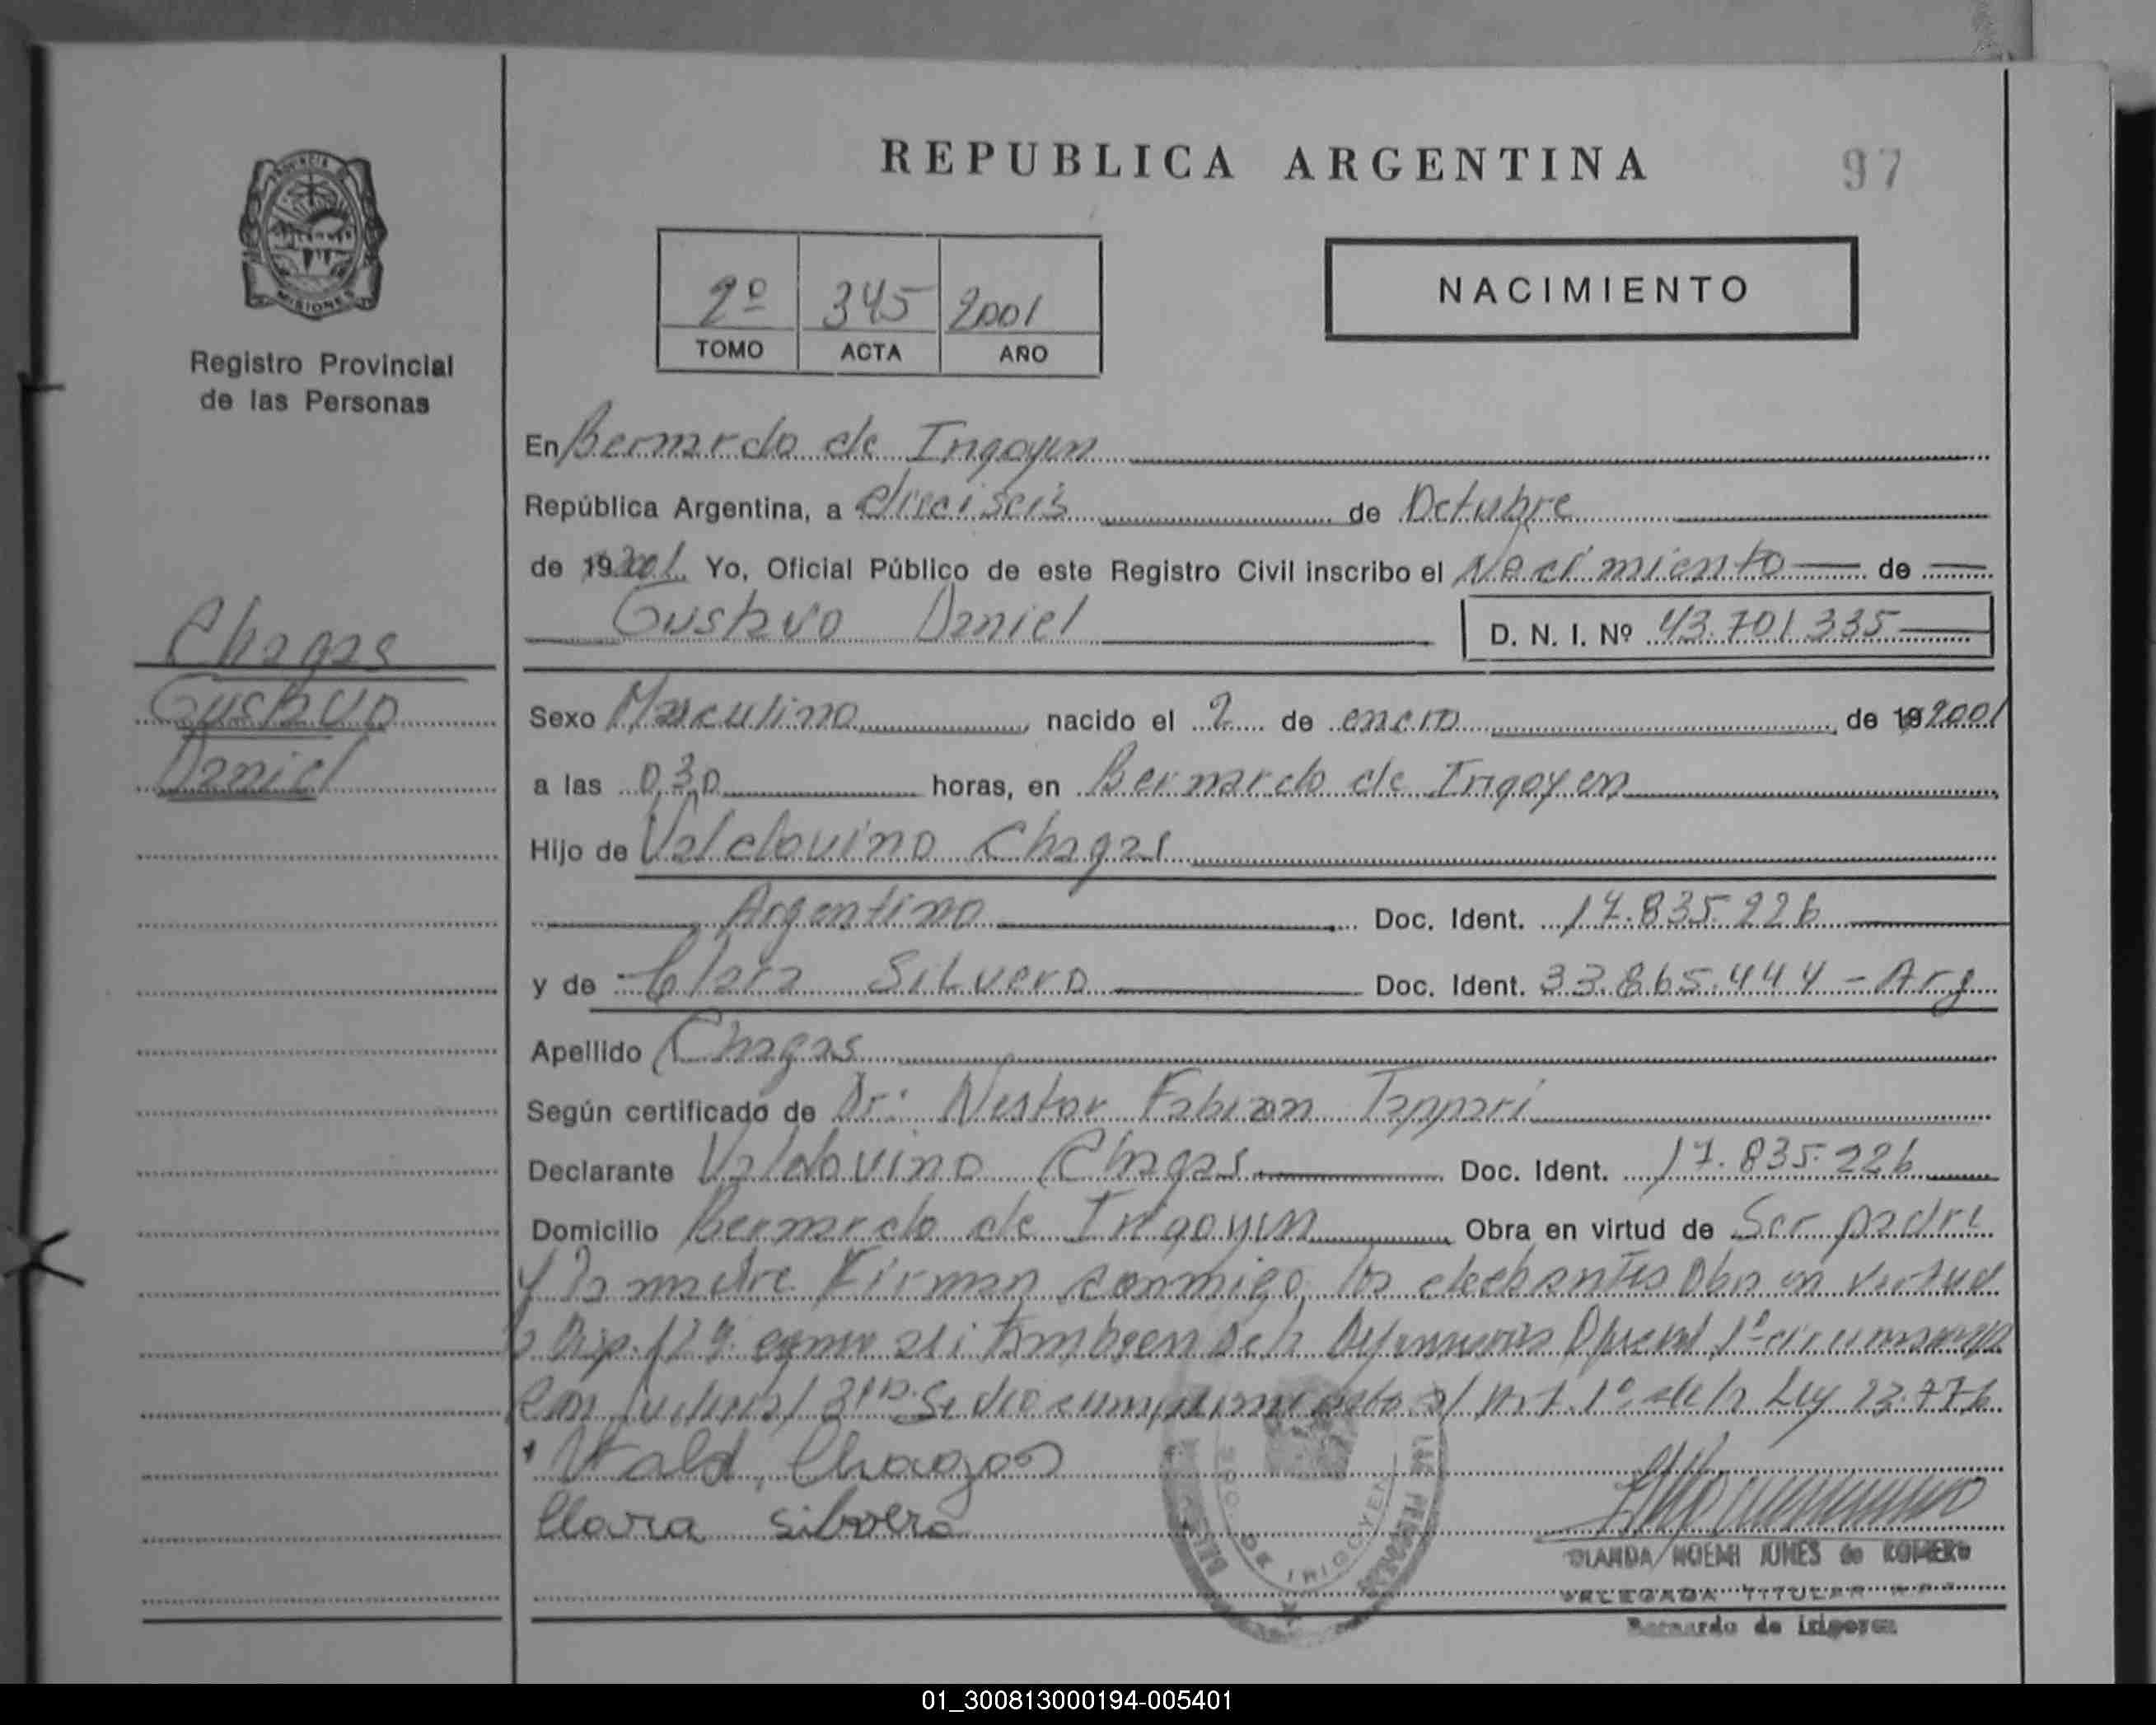 REPUBLICA ARGENTINA
97
PROVINCIA DE
MISIONES
Registro Provincial
de las Personas
2º 345 2001
TOMO ACTA AÑO
NACIMIENTO
En Bernardo de Irigoyen
República Argentina, a dieciseis de Octubre
de 19 2001 Yo, Oficial Público de este Registro Civil inscribo el Nacimiento de
Gustavo Daniel D. N. I. Nº 43.701.335
Chagas
Gustavo
Daniel
Sexo Masculino, nacido el 2 de enero, de 19 2001
a las 0,30 horas, en Bernardo de Irigoyen
Hijo de Valdovino Chagas
Argentino Doc. Ident. 17.835.226
y de Clara Silvero Doc. Ident. 33.865.444 - Arg
Apellido Chagas
Según certificado de Dr: Nestor Fabian Tappari
Declarante Valdovino Chagas Doc. Ident. 17.835.226
Domicilio Bernardo de Irigoyen Obra en virtud de Ser padre
y la madre Firman conmigo los declarantes Obra en virtud
Disp. 129 como asi tambien de la 1º
Judicial Se dio cumplimiento al Art. 1º de la Ley 23.776
Vald. Chagas
Clara silvero
YOLANDA NOEMI JUNES de ROMERO
DELEGADA TITULAR
Bernardo de Irigoyen
DE IRIGOYEN
01_300813000194-005401